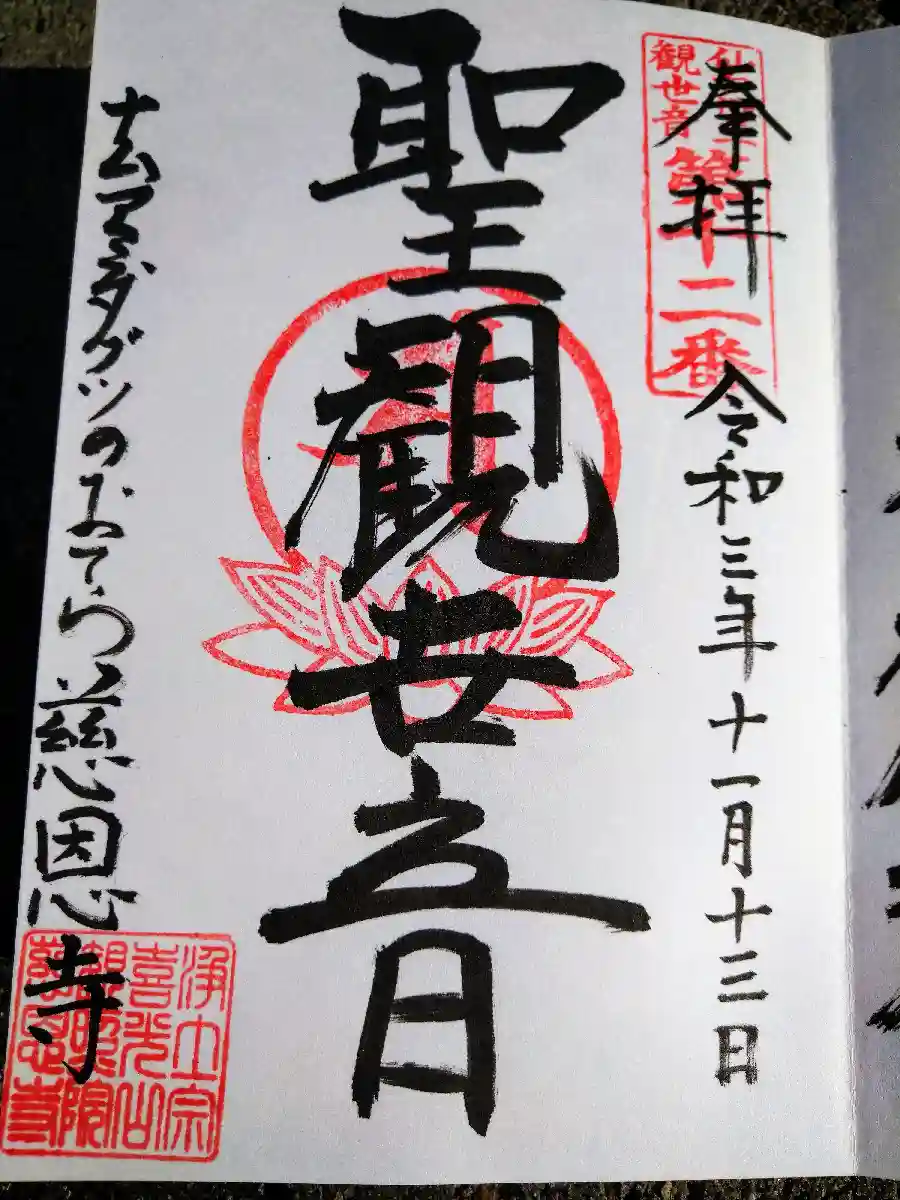 奉拝
令和三年十一月十三日
観世音
第十二番
聖観世音
ナムアミダブツのおてら慈恩寺
浄土宗
喜光山
慈恩寺